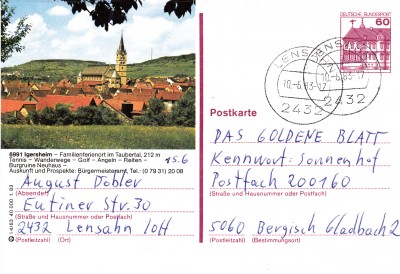 DEUTSCHE BUNDESPOST
60
LENSAHN
10.-6.83-17
2432
LENSAHN
10.-6.83-17
2432
6991 Igersheim – Familienferienort im Taubertal, 212 m
Tennis – Wanderwege – Golf – Angeln – Reiten –
Burgruine Neuhaus –
Auskunft und Prospekte: Bürgermeisteramt, Tel.: (0 79 31) 20 08
15.6
August Döbler
(Absender)
Eutiner Str. 30
(Straße und Hausnummer oder Postfach)
2432 Lensahn
(Postleitzahl) (Ort)
Postkarte
DAS GOLDENE BLATT
Kennwort: Sonnenhof
Postfach 200160
(Straße und Hausnummer oder Postfach)
5060 Bergisch Gladbach 2
(Postleitzahl) (Bestimmungsort)